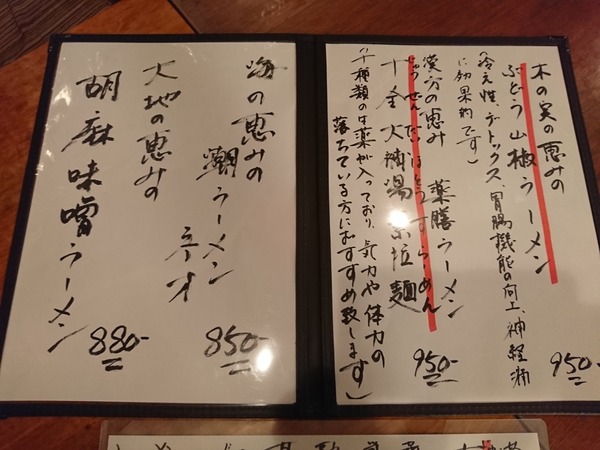 木の実の恵みの
ぶどう山椒ラーメン
950-
(冷え性、デトックス、胃腸機能の向上、神経痛
に効果的です)
漢方の恵み 薬膳ラーメン
じゅうぜんだいほとうすーらーめん
十全大補湯素拉麺
950-
(十種類の中薬が入っており、気力や体力の
落ちている方におすすめ致します)
海の恵みの
潮ラーメン
850-
大地の恵みの
胡麻味噌ラーメン
880-